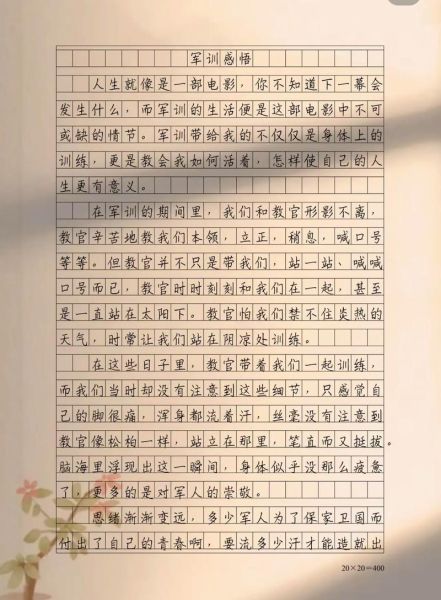 军训感悟
人生就像是一部电影，你不知道下一幕会
发生什么，而军训的生活便是这部电影中不可
或缺的情节。军训带给我的不仅仅是身体上的
训练，更是教会我如何活着，怎样使自己的人
生更有意义。
在军训的期间里，我们和教官形影不离，
教官辛苦地教我们本领，立正，稍息，喊口号
等等。但教官并不只是带我们，站一站、喊喊
口号而已，教官时时刻刻和我们在一起，甚至
是一直站在太阳下。教官怕我们禁不住炎热的
天气，时常让我们站在阴凉处训练。
在这些日子里，教官带着我们一起训练，
而我们当时却没有注意到这些细节，只感觉自
己的脚很痛，浑身都流着汗，丝毫没有注意到
教官像松柏一样，站立在那里，笔直而又挺拔。
脑海里浮现出这一瞬间，身体似乎没那么疲惫
了，更多的是对军人的崇敬。
思绪渐渐变远，多少军人为了保家卫国而
付出了自己的青春啊，要流多少汗才能造就出
20×20=400